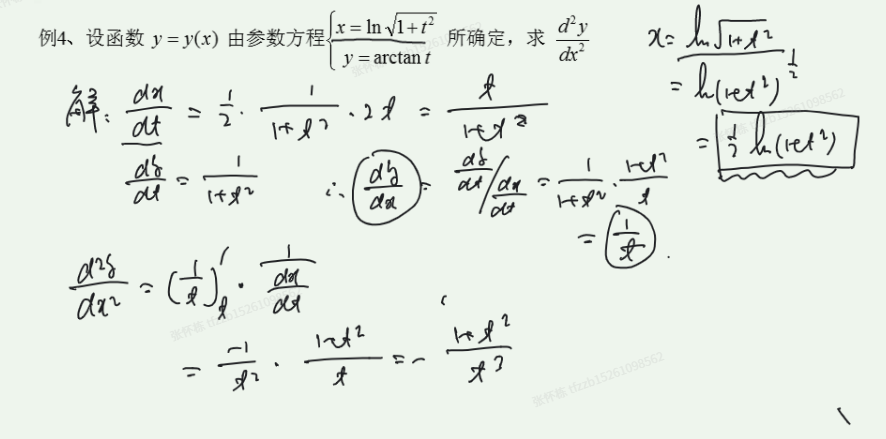 例4、设函数 y = y(x) 由参数方程 { x = ln √(1+t²) , y = arctan t 所确定，求 d²y/dx²
x = ln√(1+t²)
= ln(1+t²)^(1/2)
= 1/2 ln(1+t²)
解: dx/dt = 1/2 · 1/(1+t²) · 2t = t/(1+t²)
dy/dt = 1/(1+t²) ∴ dy/dx = dy/dt / dx/dt = 1/(1+t²) · (1+t²)/t
= 1/t .
d²y/dx² = (1/t)'_t · 1/(dx/dt)
= -1/t² · (1+t²)/t = - (1+t²)/t³
张怀栋 tfzzb15261098562